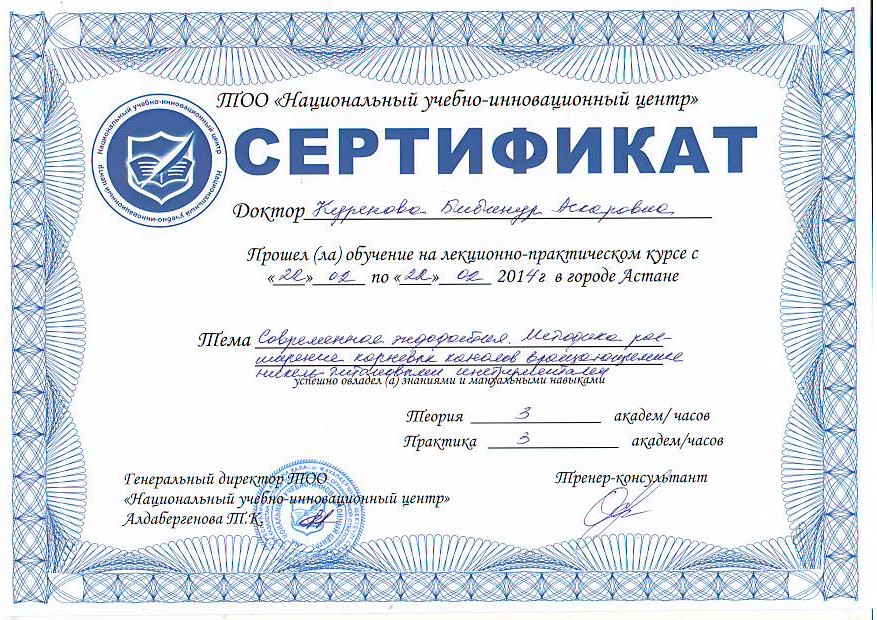 ТОО «Национальный учебно-инновационный центр»
СЕРТИФИКАТ
Национальный учебно-инновационный центр
Национальный учебно-инновационный центр
Доктор Куренова Бибинур Аскаровна
Прошел (ла) обучение на лекционно-практическом курсе с
«22» 02 по «22» 02 2014г в городе Астане
Тема Современная эндодонтия. Методика рас-
ширение корневых каналов вращающимися
никель титановыми инструментами
успешно овладел (а) знаниями и мануальными навыками
Теория 3 академ/ часов
Практика 3 академ/часов
Генеральный директор ТОО
«Национальный учебно-инновационный центр»
Алдабергенова Т.К.
Тренер-консультант